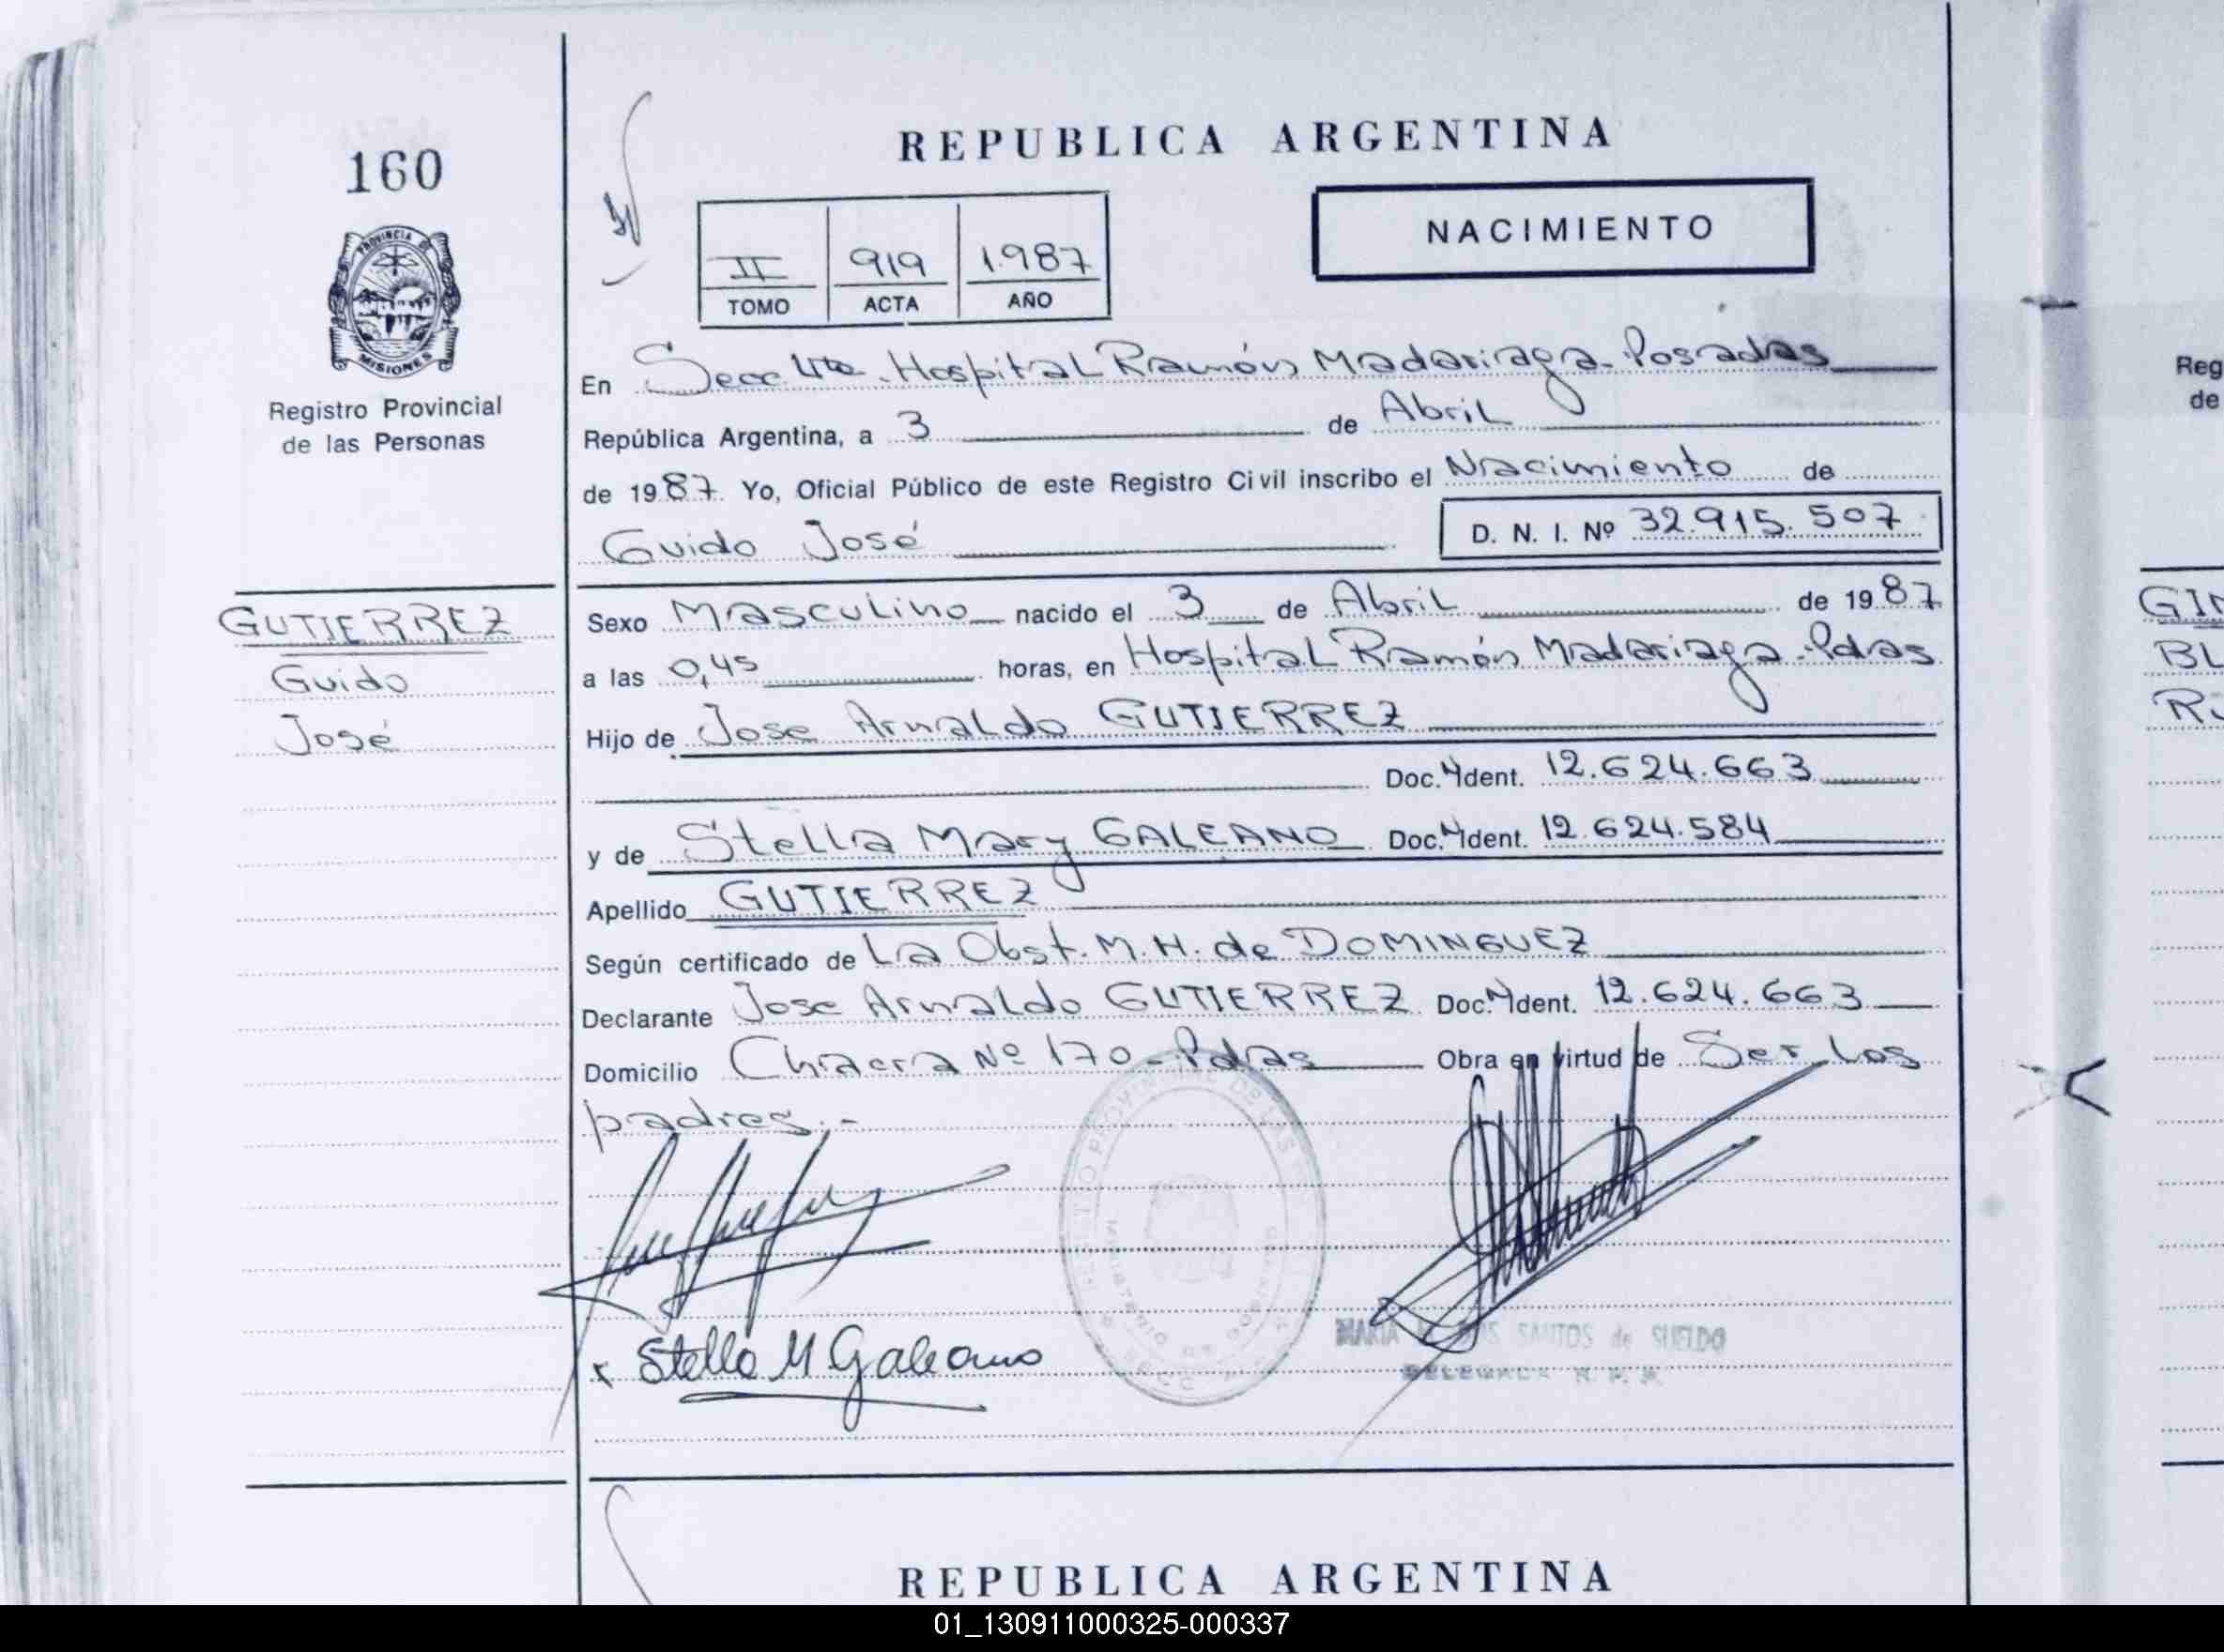 160
PROVINCIA DE
MISIONES
Registro Provincial
de las Personas
GUTIERREZ
Guido
José
REPUBLICA ARGENTINA
II 919 1.987
TOMO ACTA AÑO
NACIMIENTO
En Secc 4ta. Hospital Ramón Madariaga - Posadas
República Argentina, a 3 de Abril
de 1987. Yo, Oficial Público de este Registro Civil inscribo el Nacimiento de
Guido José D. N. I. Nº 32.915.507
Sexo Masculino nacido el 3 de Abril de 1987
a las 0,45 horas, en Hospital Ramón Madariaga - Pdas
Hijo de Jose Arnaldo GUTIERREZ
Doc. Ident. 12.624.663
y de Stella Mary GALEANO Doc. Ident. 12.624.584
Apellido GUTIERREZ
Según certificado de La Obst. M. H. de DOMINGUEZ
Declarante Jose Arnaldo GUTIERREZ Doc. Ident. 12.624.663
Domicilio Chacra Nº 170 - Pdas Obra en virtud de Ser los
padres.-
Stella M Galeano
MARIA SANTOS de SUELDO
DELEGADA R. P. P.
REPUBLICA ARGENTINA
Reg
de
GIM
BL
01_130911000325-000337